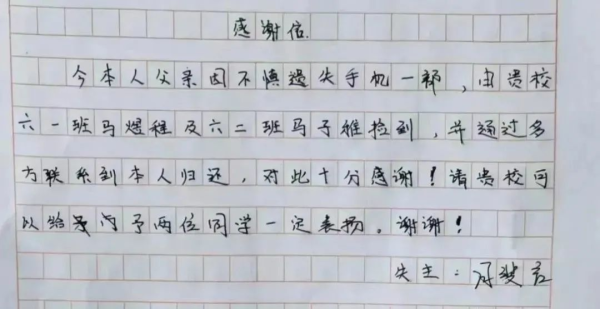 感谢信.
今本人父亲因不慎遗失手机一部,由贵校
六一班马煜程及六二班马子雄捡到,并通过多
方联系到本人归还,对此十分感谢!请贵校可
以给予两位同学一定表扬。谢谢!
失主: